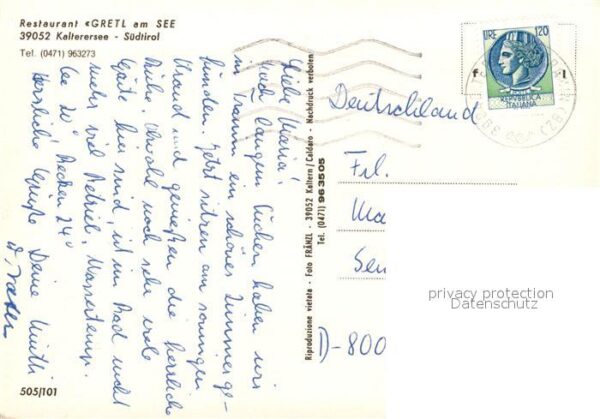 Restaurant «GRETL am SEE
39052 Kalterersee - Südtirol
Tel. (0471) 963273
Liebe Maria!
Nach langem Suchen haben wir
in Tramin ein schönes Zimmer ge-
funden. Jetzt sitzen am sonnigen
Strand und genießen die herrliche
Ruhe. Obwohl noch sehr viele
Gäste hier sind, ist im Bad nicht
mehr viel Betrieb. Wassertemp.
See 20° Becken 24°
Herzliche Grüße Deine
505/101
Riproduzione vietata - Foto FRÄNZL - 39052 Kaltern / Caldaro - Nachdruck verboten
Tel. (0471) 963505
LIRE 120
REPUBBLICA
ITALIANA
Deutschland
Frl.
Ma
Sen
D-800
privacy protection
Datenschutz